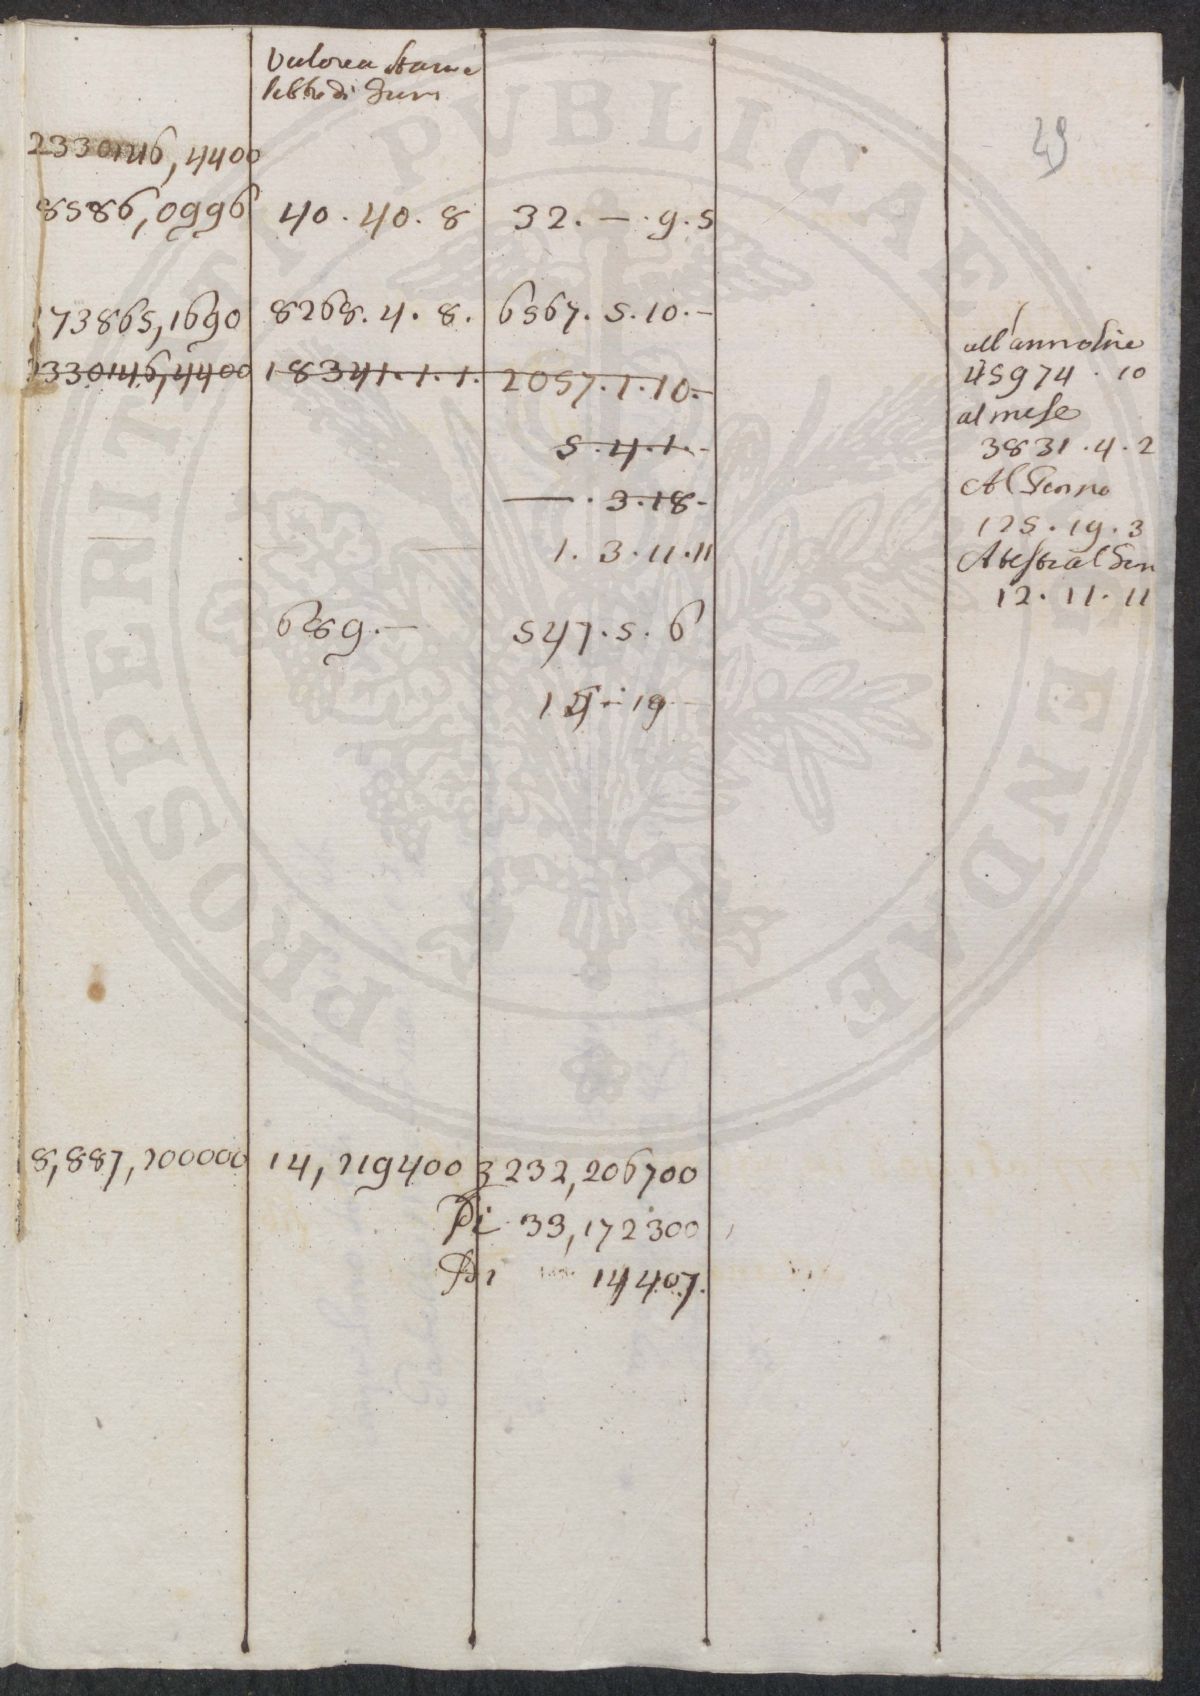 29
2330146,4400
8586,0996 40.40.8 32.—.9.5
73865,1690 8268.4.8. 6567.5.10.-
2330146,4400 18341.1.1. 2057.1.10.-
5.4.1.-
—.3.18-
1.3.11.11
689.— 547.5.6
19
all'anno lire
45974.10
al mese
3831.4.2
Al Giorno
125.19.3
A testa al
12.11.11
8,887,200000 14,219400 3232,206700
Di 33,172300
Di 14407.
PROSPERITATI PUBLICAE AUGENDAE